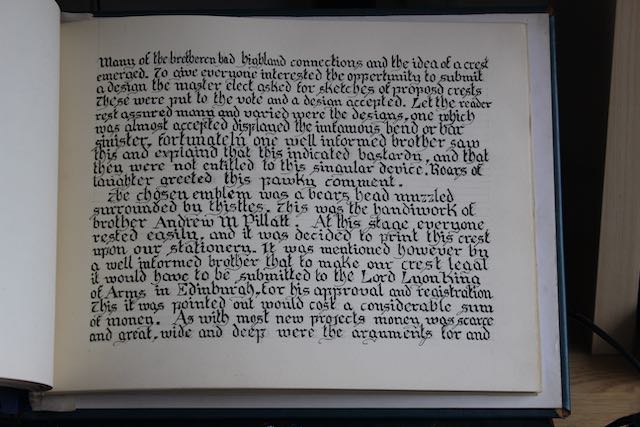 Many of the bretheren had highland connections and the idea of a crest
emerged. To give everyone interested the opportunity to submit
a design the master elect asked for sketches of proposd crests
These were put to the vote and a design accepted. Let the reader
rest assured many and varied were the designs, one which
was almost accepted displayed the infamous bend or bar
sinister, fortunately one well informed brother saw
this and explaind that this indicated bastardy, and that
they were not entitled to this singular device. Roars of
laughter greeted this pawky comment.
The chosen emblem was a bears head muzzled
surrounded by thistles. This was the handiwork of
brother Andrew M Pillatt. At this stage everyone
rested easily, and it was decided to print this crest
upon our stationery. It was mentioned however by
a well informed brother that to make our crest legal
it would have to be submitted to the Lord Lyon king
of Arms in Edinburgh, for his approval and registration
This it was pointed out would cost a considerable sum
of money. As with most new projects money was scarce
and great, wide and deep were the arguments for and